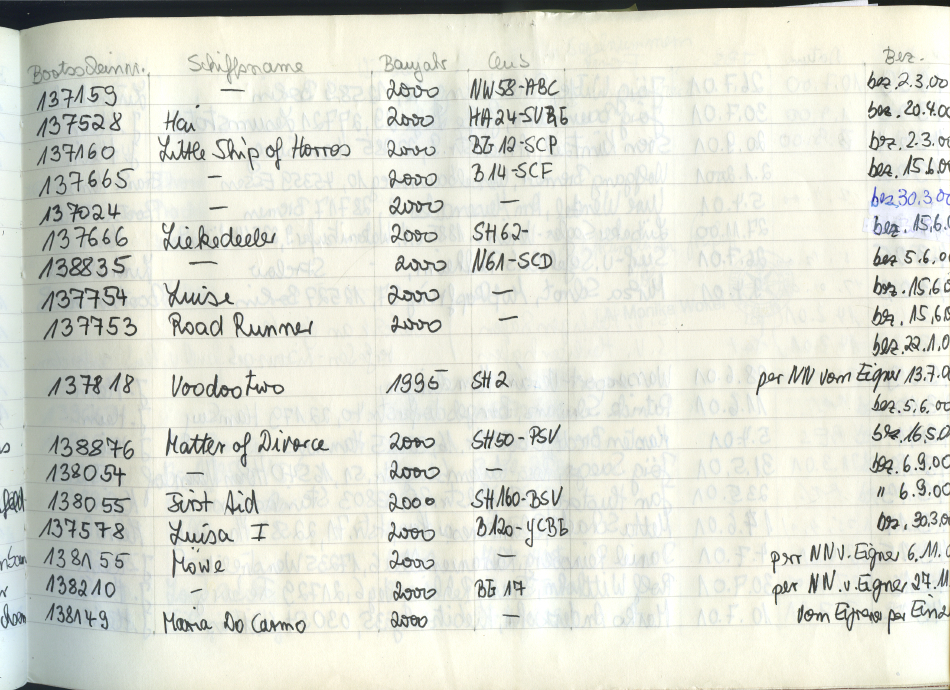 Schiffsname Baujahr Bez.
137159 — 2000 NW58-ABC bez. 2.3.00
137528 Hai 2000 HA24-SVBE bez. 20.4.00
137160 Little Ship of Horros 2000 BE12-SCP bez. 2.3.00
137665 — 2000 B14-SCF bez. 15.6.00
137024 — 2000 — bez. 30.3.00
137666 Liekedeeler 2000 SH62- bez. 15.6.0
138835 — 2000 N61-SCD bez. 5.6.00
137754 Luise 2000 — bez. 15.6.0
137753 Road Runner 2000 — bez. 15.6.0
bez. 22.1.0
137818 Voodootwo 1995 SH2 per NN vom Eigner 13.7.0
bez. 5.6.00
138876 Matter of Divorce 2000 SH50-PSV bez. 16.5.0
138054 — 2000 — bez. 6.9.00
138055 First Aid 2000 SH160-BSV " 6.9.00
137578 Luisa I 2000 B120-YCBE bez. 30.3.0
138155 Möwe 2000 — per NN v. Eigner 6.11.0
138210 - 2000 BE17 per NN. v. Eigner 27.11
138149 Maria Do Carmo 2000 — vom Eigner per